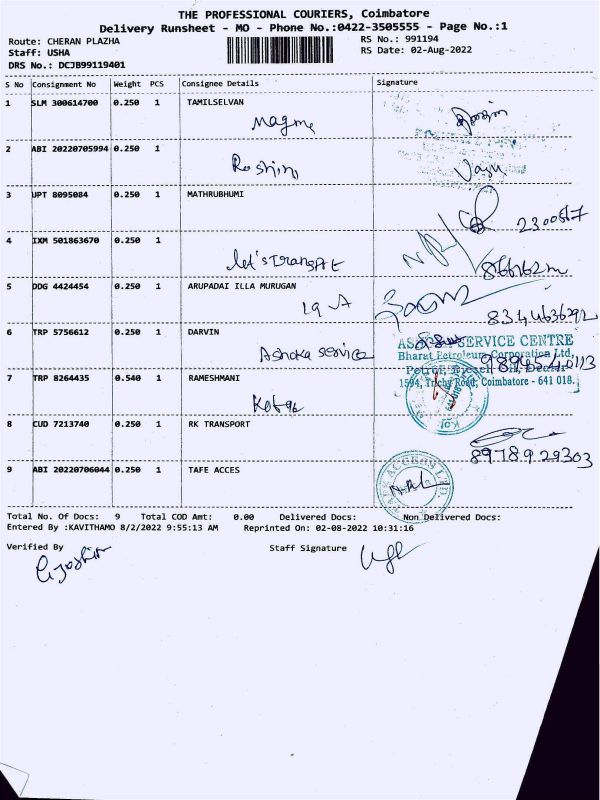 THE PROFESSIONAL COURIERS, Coimbatore
Delivery Runsheet - MO - Phone No.:0422-3505555 - Page No.:1
Route: CHERAN PLAZHA RS No.: 991194
Staff: USHA RS Date: 02-Aug-2022
DRS No.: DCJB99119401
S No Consignment No Weight PCS Consignee Details Signature
1 SLM 300614700 0.250 1 TAMILSELVAN
Magma
2 ABI 20220705994 0.250 1
Roshini
3 UPT 8095084 0.250 1 MATHRUBHUMI
4 IXM 501863670 0.250 1
let's transport
5 DDG 4424454 0.250 1 ARUPADAI ILLA MURUGAN
8344636292
6 TRP 5756612 0.250 1 DARVIN
Ashoka service
SERVICE CENTRE
Bharat Petroleum Corporation Ltd,
7 TRP 8264435 0.540 1 RAMESHMANI
1594, Trichy Road, Coimbatore - 641 018.
Kotak
8 CUD 7213740 0.250 1 RK TRANSPORT
8978929303
9 ABI 20220706044 0.250 1 TAFE ACCES
Total No. Of Docs: 9 Total COD Amt: 0.00 Delivered Docs: Non Delivered Docs:
Entered By :KAVITHAMO 8/2/2022 9:55:13 AM Reprinted On: 02-08-2022 10:31:16
Verified By Staff Signature